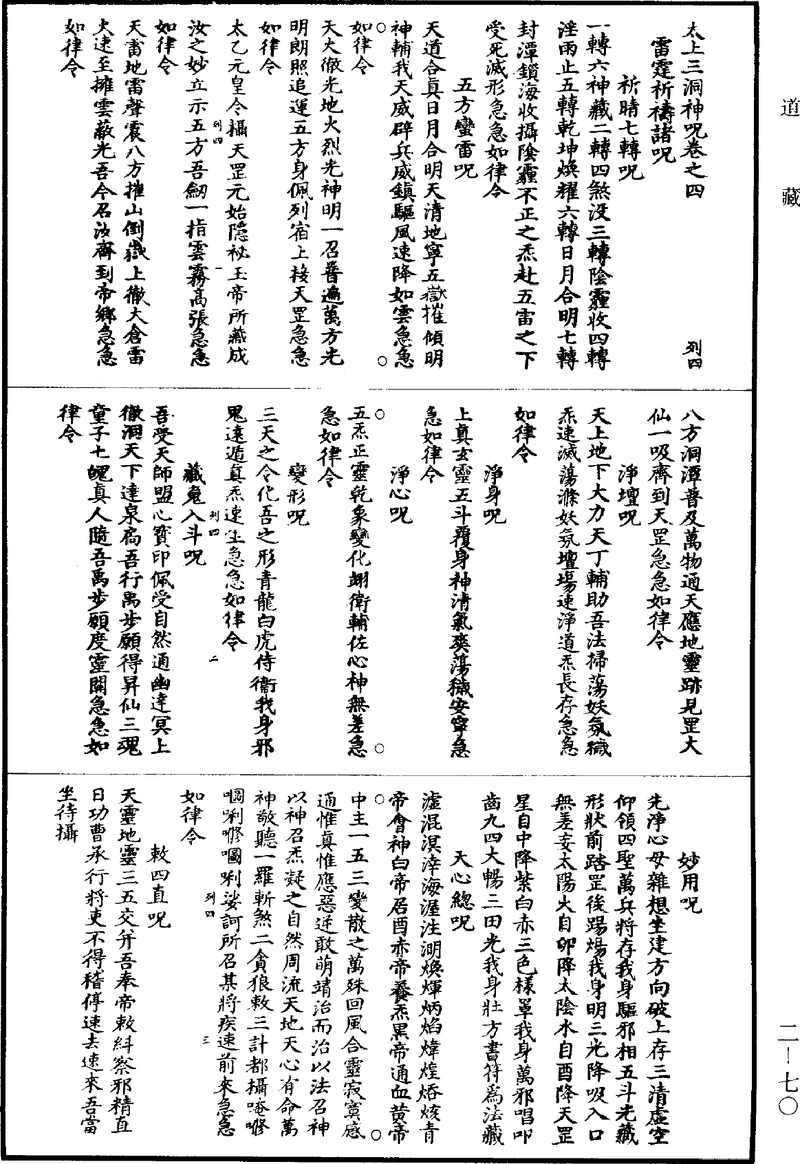 道藏
太上三洞神呪卷之四
列四
雷霆祈禱諸呪
祈晴七轉呪
一轉六神藏二轉四煞没三轉陰霾收四轉
淫雨止五轉乾坤焕耀六轉日月合明七轉
封潭鎖海收攝陰霾不正之炁赴五雷之下
受死滅形急急如律令
五方蠻雷呪
天道合真日月合明天清地寧五嶽摧傾明
神輔我天威辟兵威鎮驅風速降如雲急急
如律令
天火徹光地火烈光神明一召普遍萬方光
明朗照追運五方身佩列宿上接天罡急急
如律令
太乙元皇令攝天罡元始隱祕玉帝所藏成
列四
一
汝之妙立示五方吾劒一指雲霧高張急急
如律令
天雷地雷聲震八方摧山倒嶽上徹大倉雷
火速至擁雲蔽光吾今召汝齊到帝鄉急急
如律令
八方洞潭普及萬物通天應地靈跡見罡大
仙一吸齊到天罡急急如律令
淨壇呪
天上地下大力天丁輔助吾法掃蕩妖氛穢
炁速滅蕩滌妖氛壇場速淨道炁長存急急
如律令
淨身呪
上真玄靈五斗覆身神清氣爽蕩穢安寧急
急如律令
淨心呪
五炁正靈乾象變化翊衛輔佐心神無差急
急如律令
變形呪
三天之令化吾之形青龍白虎侍衛我身邪
鬼遠遁真炁速生急急如律令
列四
二
藏鬼入斗呪
吾受天師盟心寶印佩受自然通幽達冥上
徹洞天下達泉扃吾行禹步願得昇仙三魂
童子七魄真人隨吾禹步願度靈關急急如
律令
妙用呪
先淨心毋雜想坐建方向破上存三清虛空
仰領四聖萬兵將存我身驅邪相五斗光藏
形狀前踏罡後踢煬我身明三光降吸入口
無差妄太陽火自卯降太陰水自酉降天罡
星自中降紫白赤三色樣罩我身萬邪唱叩
齒九四大暢三田光我身壯方書符爲法藏
天心總呪
澒混溟涬海渥泩湖焕煇炳焰煒煌焝烗青
帝會神白帝居酉赤帝養炁黑帝通血黄帝
中主一五三變散之萬殊回風合靈寂寞感
通惟真惟應惡逆敢萌靖治而治以法召神
以神召炁凝之自然周流天地天心有命萬
神敬聽一羅斬煞二貪狼敕三計都攝唵㗭
嚪唎㗭嚪唎娑訶所召某將疾速前來急急
列四
三
如律令
敕四直呪
天靈地靈三五交并吾奉帝敕糾察邪精直
日功曹承行將吏不得稽停速去速來吾當
坐待攝
二一七〇